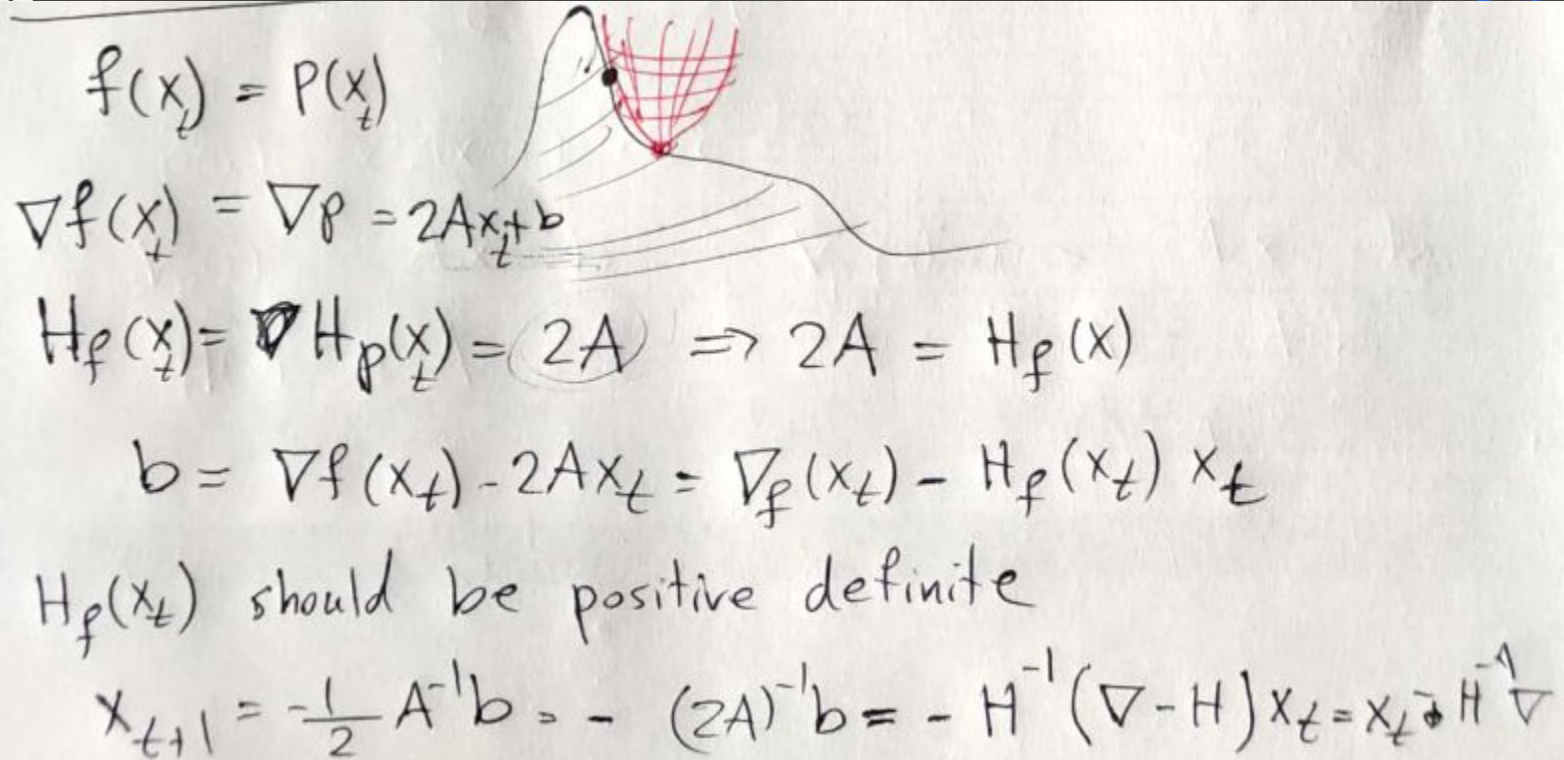 f(x_t) = P(x_t)
∇f(x_t) = ∇p = 2Ax_t + b
H_f(x_t) = ∇ H_p(x_t) = 2A ⇒ 2A = H_f(x)
b = ∇f(x_t) - 2Ax_t = ∇_f(x_t) - H_f(x_t) x_t
H_f(x_t) should be positive definite
x_{t+1} = -1/2 A^{-1}b = - (2A)^{-1}b = - H^{-1}(∇-H)x_t = x_t - H^{-1}∇